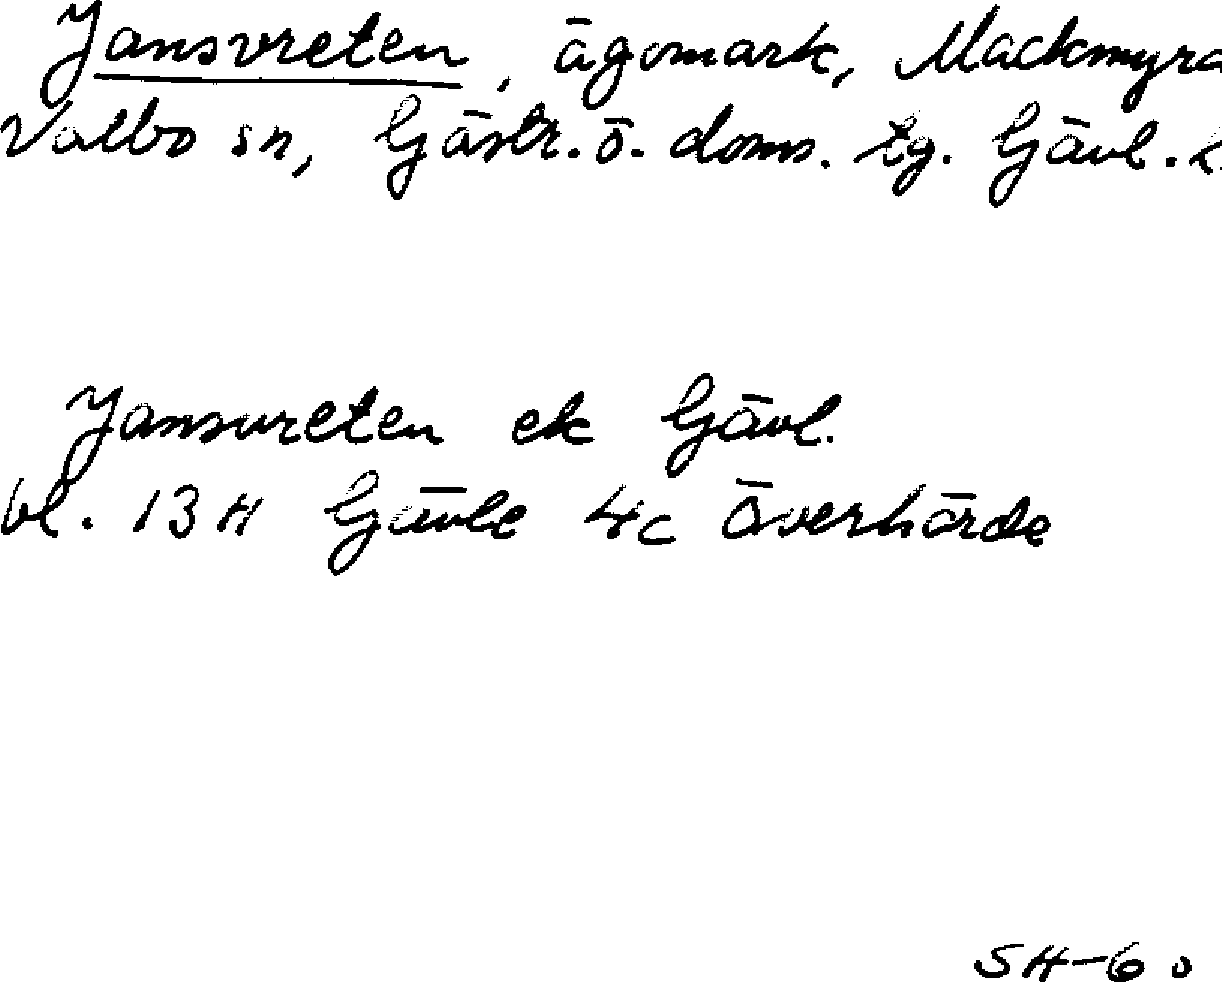 Jansvreten, ägomark, Mackmyra
Valbo sn, Gästr. ö. doms. tg. Gävl. l.
Jansvreten ek Gävl.
bl. 13H Gävle 4c Överhärde
SH-60